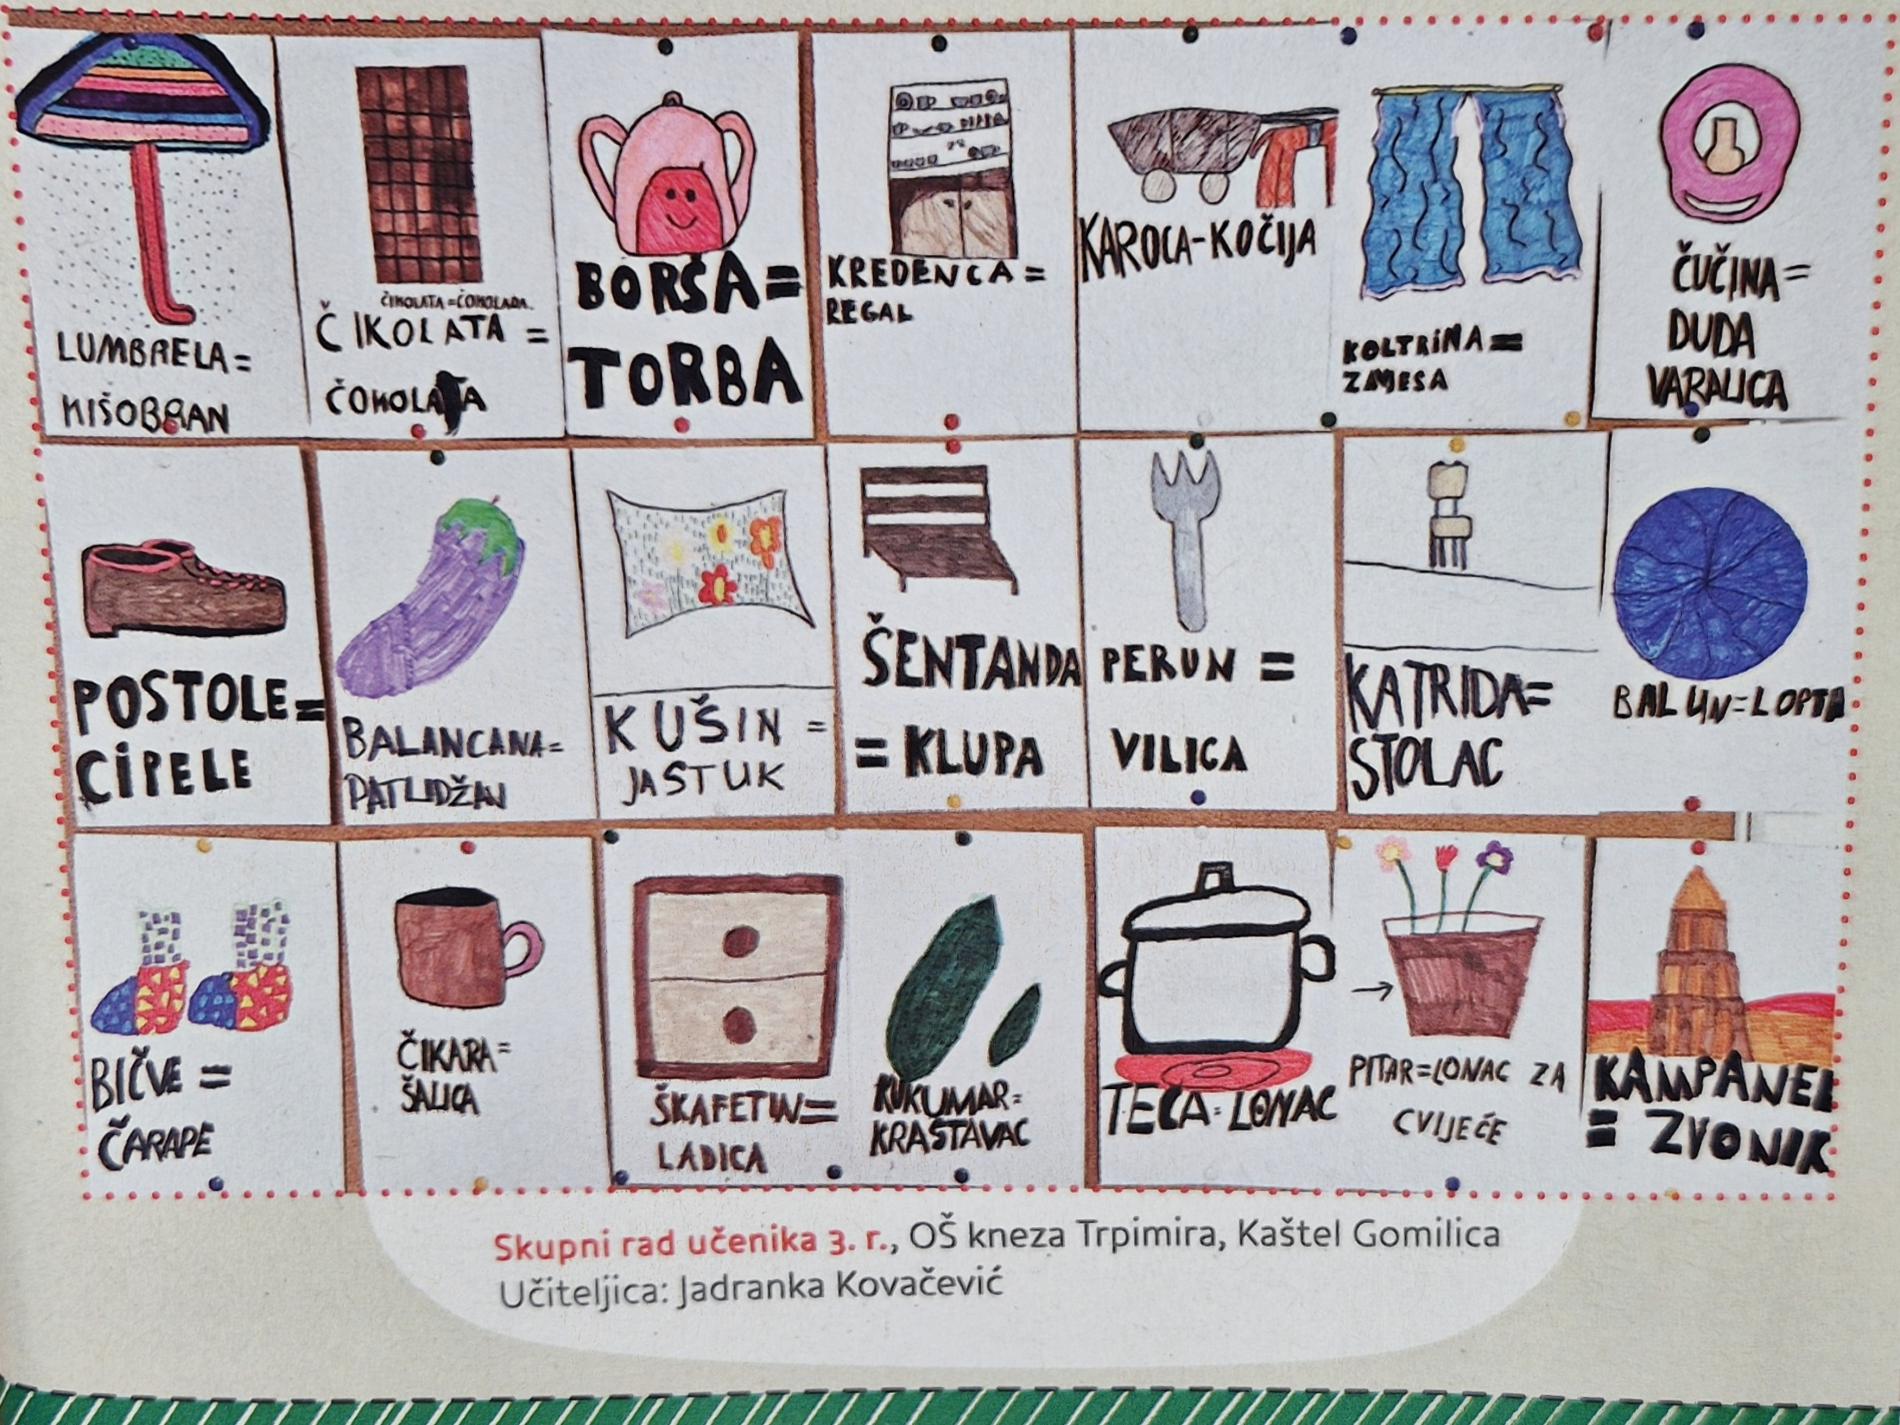 LUMBRELA=
KIŠOBRAN
ČIKOLATA=ČOKOLADA
ČIKOLATA =
ČOKOLATA
BORŠA=
TORBA
KREDENCA =
REGAL
KAROCA-KOČIJA
KOLTRINA=
ZAVJESA
ČUČINA=
DUDA
VARALICA
POSTOLE=
CIPELE
BALANCANA=
PATLIDŽAN
KUŠIN =
JASTUK
ŠENTANDA
= KLUPA
PERUN =
VILICA
KATRIDA=
STOLAC
BALUN=LOPTA
BIČVE =
ČARAPE
ČIKARA=
ŠALICA
ŠKAFETIN=
LADICA
KUKUMAR=
KRASTAVAC
TECA=LONAC
PITAR=LONAC ZA
CVIJEĆE
KAMPANEL
= ZVONIK
Skupni rad učenika 3. r., OŠ kneza Trpimira, Kaštel Gomilica
Učiteljica: Jadranka Kovačević